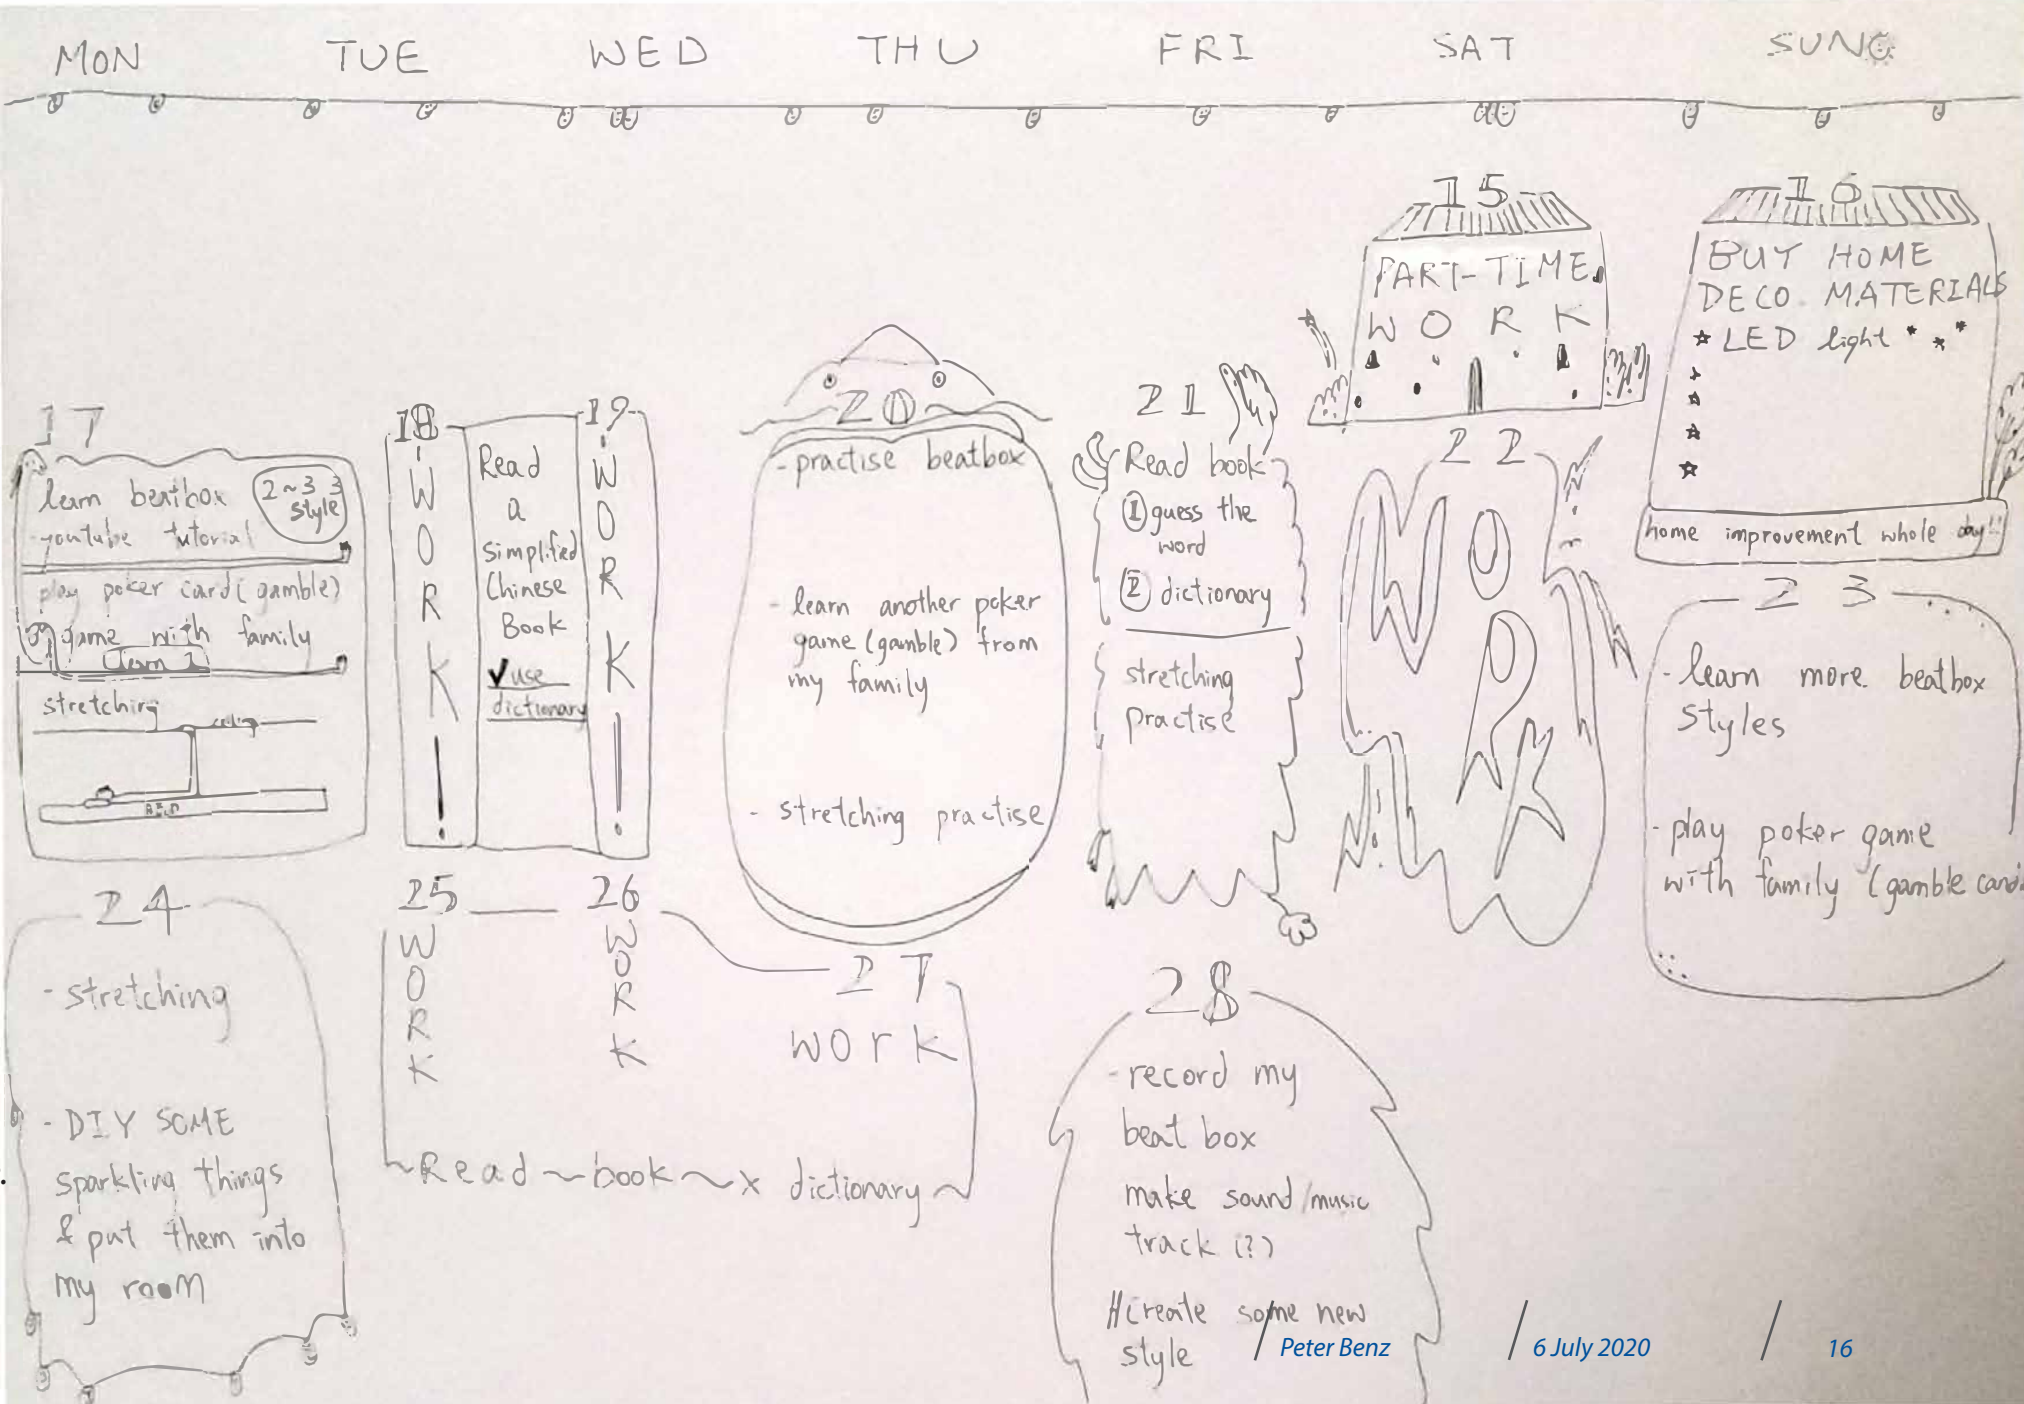 MON TUE WED THU FRI SAT SUN
15
PART-TIME
WORK
16
BUY HOME
DECO MATERIALS
LED light
home improvement whole day!!
17
learn beatbox
youtube tutorial
2~3
style
play poker card (gamble)
game with family
stretching
18
WORK!
Read
a
simplified
Chinese
Book
use
dictionary
19
WORK!
20
- practise beatbox
- learn another poker
game (gamble) from
my family
- stretching practise
21
Read book
1 guess the
word
2 dictionary
stretching
practise
22
WORK
23
- learn more beatbox
styles
- play poker game
with family (gamble
24
- stretching
- DIY SOME
sparkling things
& put them into
my room
25
WORK
26
WORK
27
work
~Read~book~x dictionary~
28
- record my
beat box
make sound/music
track (?)
create some new
style
Peter Benz / 6 July 2020 / 16